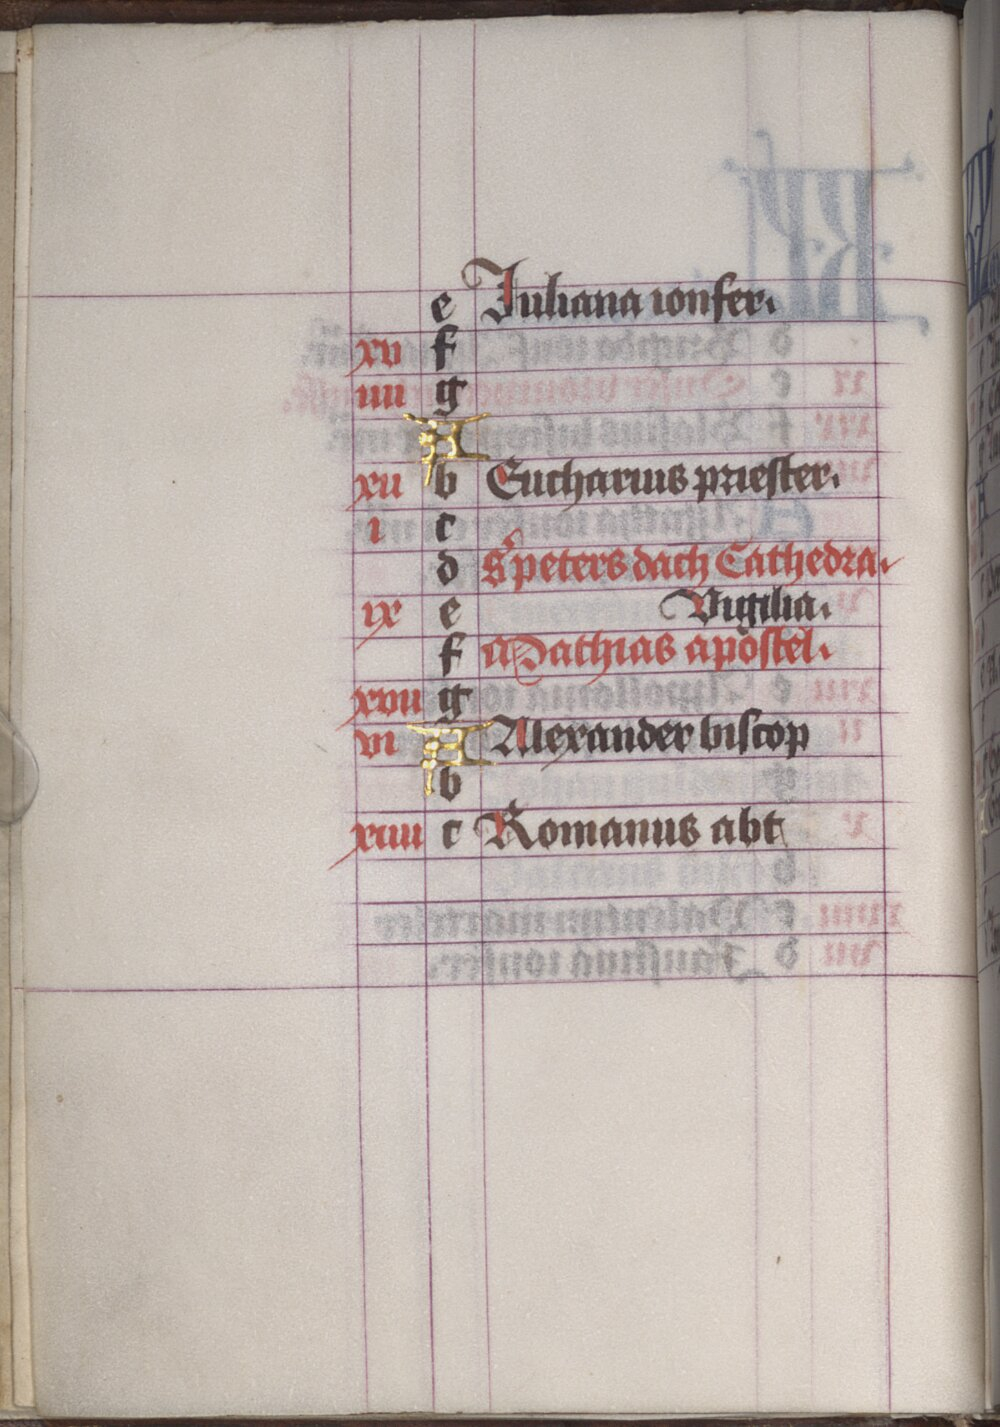 e Juliana ionfer.
xv f
iiii g
A
xii b Eucharius priester.
i c
d S peters dach Cathedra.
ix e Vigilia.
f Mathias apostel.
xvii g
vi A Alexander biscop
b
xiiii c Romanus abt